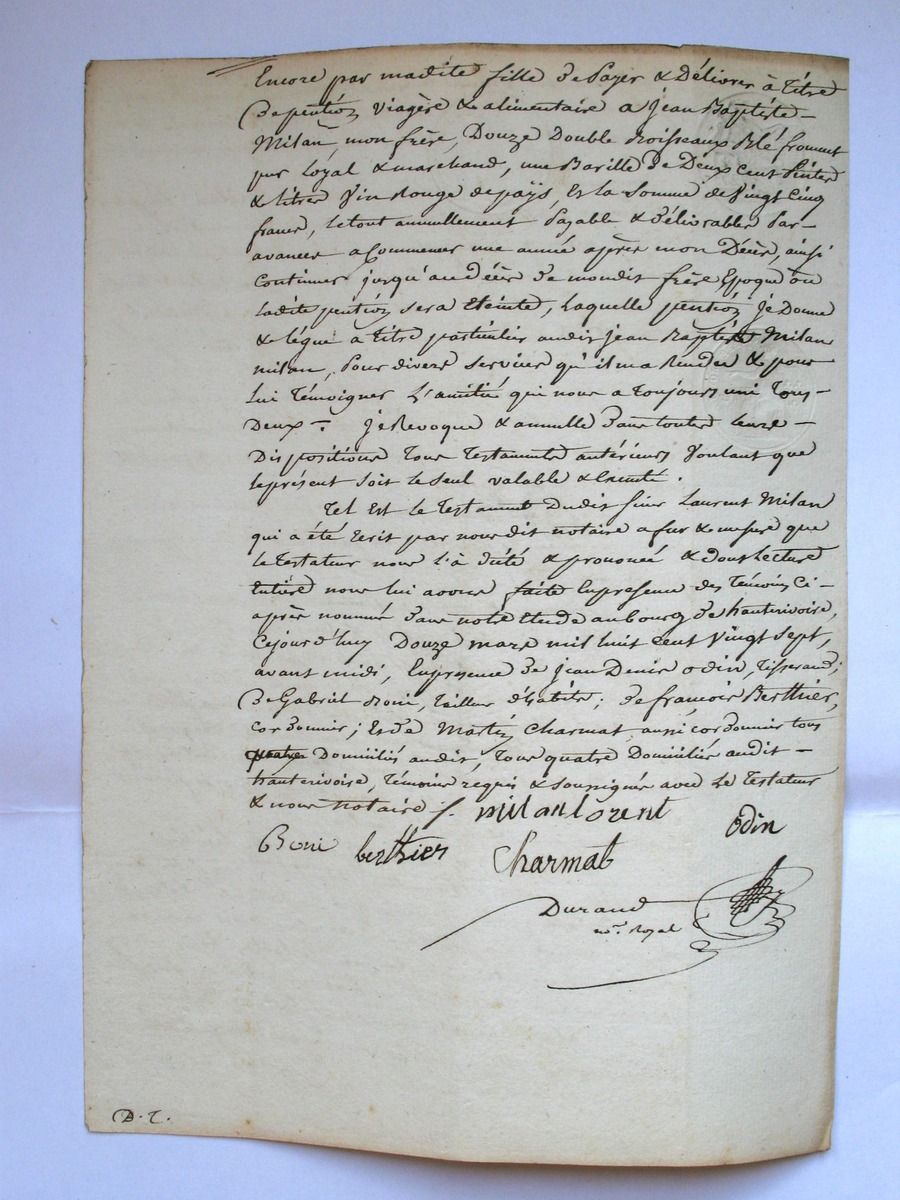 Encore par madite fille de Payer & Délivrer à Titre
de pention viagère & alimentaire a Jean Baptiste
Milan mon frère, Douze Double Boisseaux Blé froment
pur Loyal & marchand, une Barille de Deux cent Pintes
& litres Vin Rouge de païs, Et la Somme de Vingt Cinq
francs, le tout annuellement Payable & délivrables Par
avances a Commencer une année après mon Décès, ainsi
Continuer jusqu'au décès de mondit frère Eppoque ou
ladite pention sera Eteinte, Laquelle pention je Donne
& lègue a titre particulier audit jean Baptiste Milan
milan, pour divers services qu'il ma Rendu & pour
Lui Témoigner L'amitié qui nous a toujours uni Tous
Deux. je Revoque & annulle dans toutes leurs
Dispositions Tous Testaments antérieurs Voulant que
le présent soit le seul valable
Tel Est le Testament Dudit Laurent Milan
qui a été Ecrit par nous dit notaire a fur & mesure que
le Testateur nous l'à dicté & prononcé & dont Lecture
Entière nous lui avons faite En presence des Témoins Ci-
après nommés dans notre Etude au bourg de hauterivoire,
Cejourd'huy Douze mars mil huit cent Vingt Sept,
avant midi, En presence de Jean Denis Odin, Tisserand;
de Gabriel Boni, Tailleur d'habits; de françois Berthier,
cordonnier; Et de Martin Charmat aussi cordonnier tous
quatre Domiciliés audit, Tous quatre Domiciliés audit
hauterivoire, Témoins requis & soussignés avec Le Testateur
& nous notaire ./. milan lorent
Odin
Boni berthier Charmat
Durand
no.re Royal
D. T.